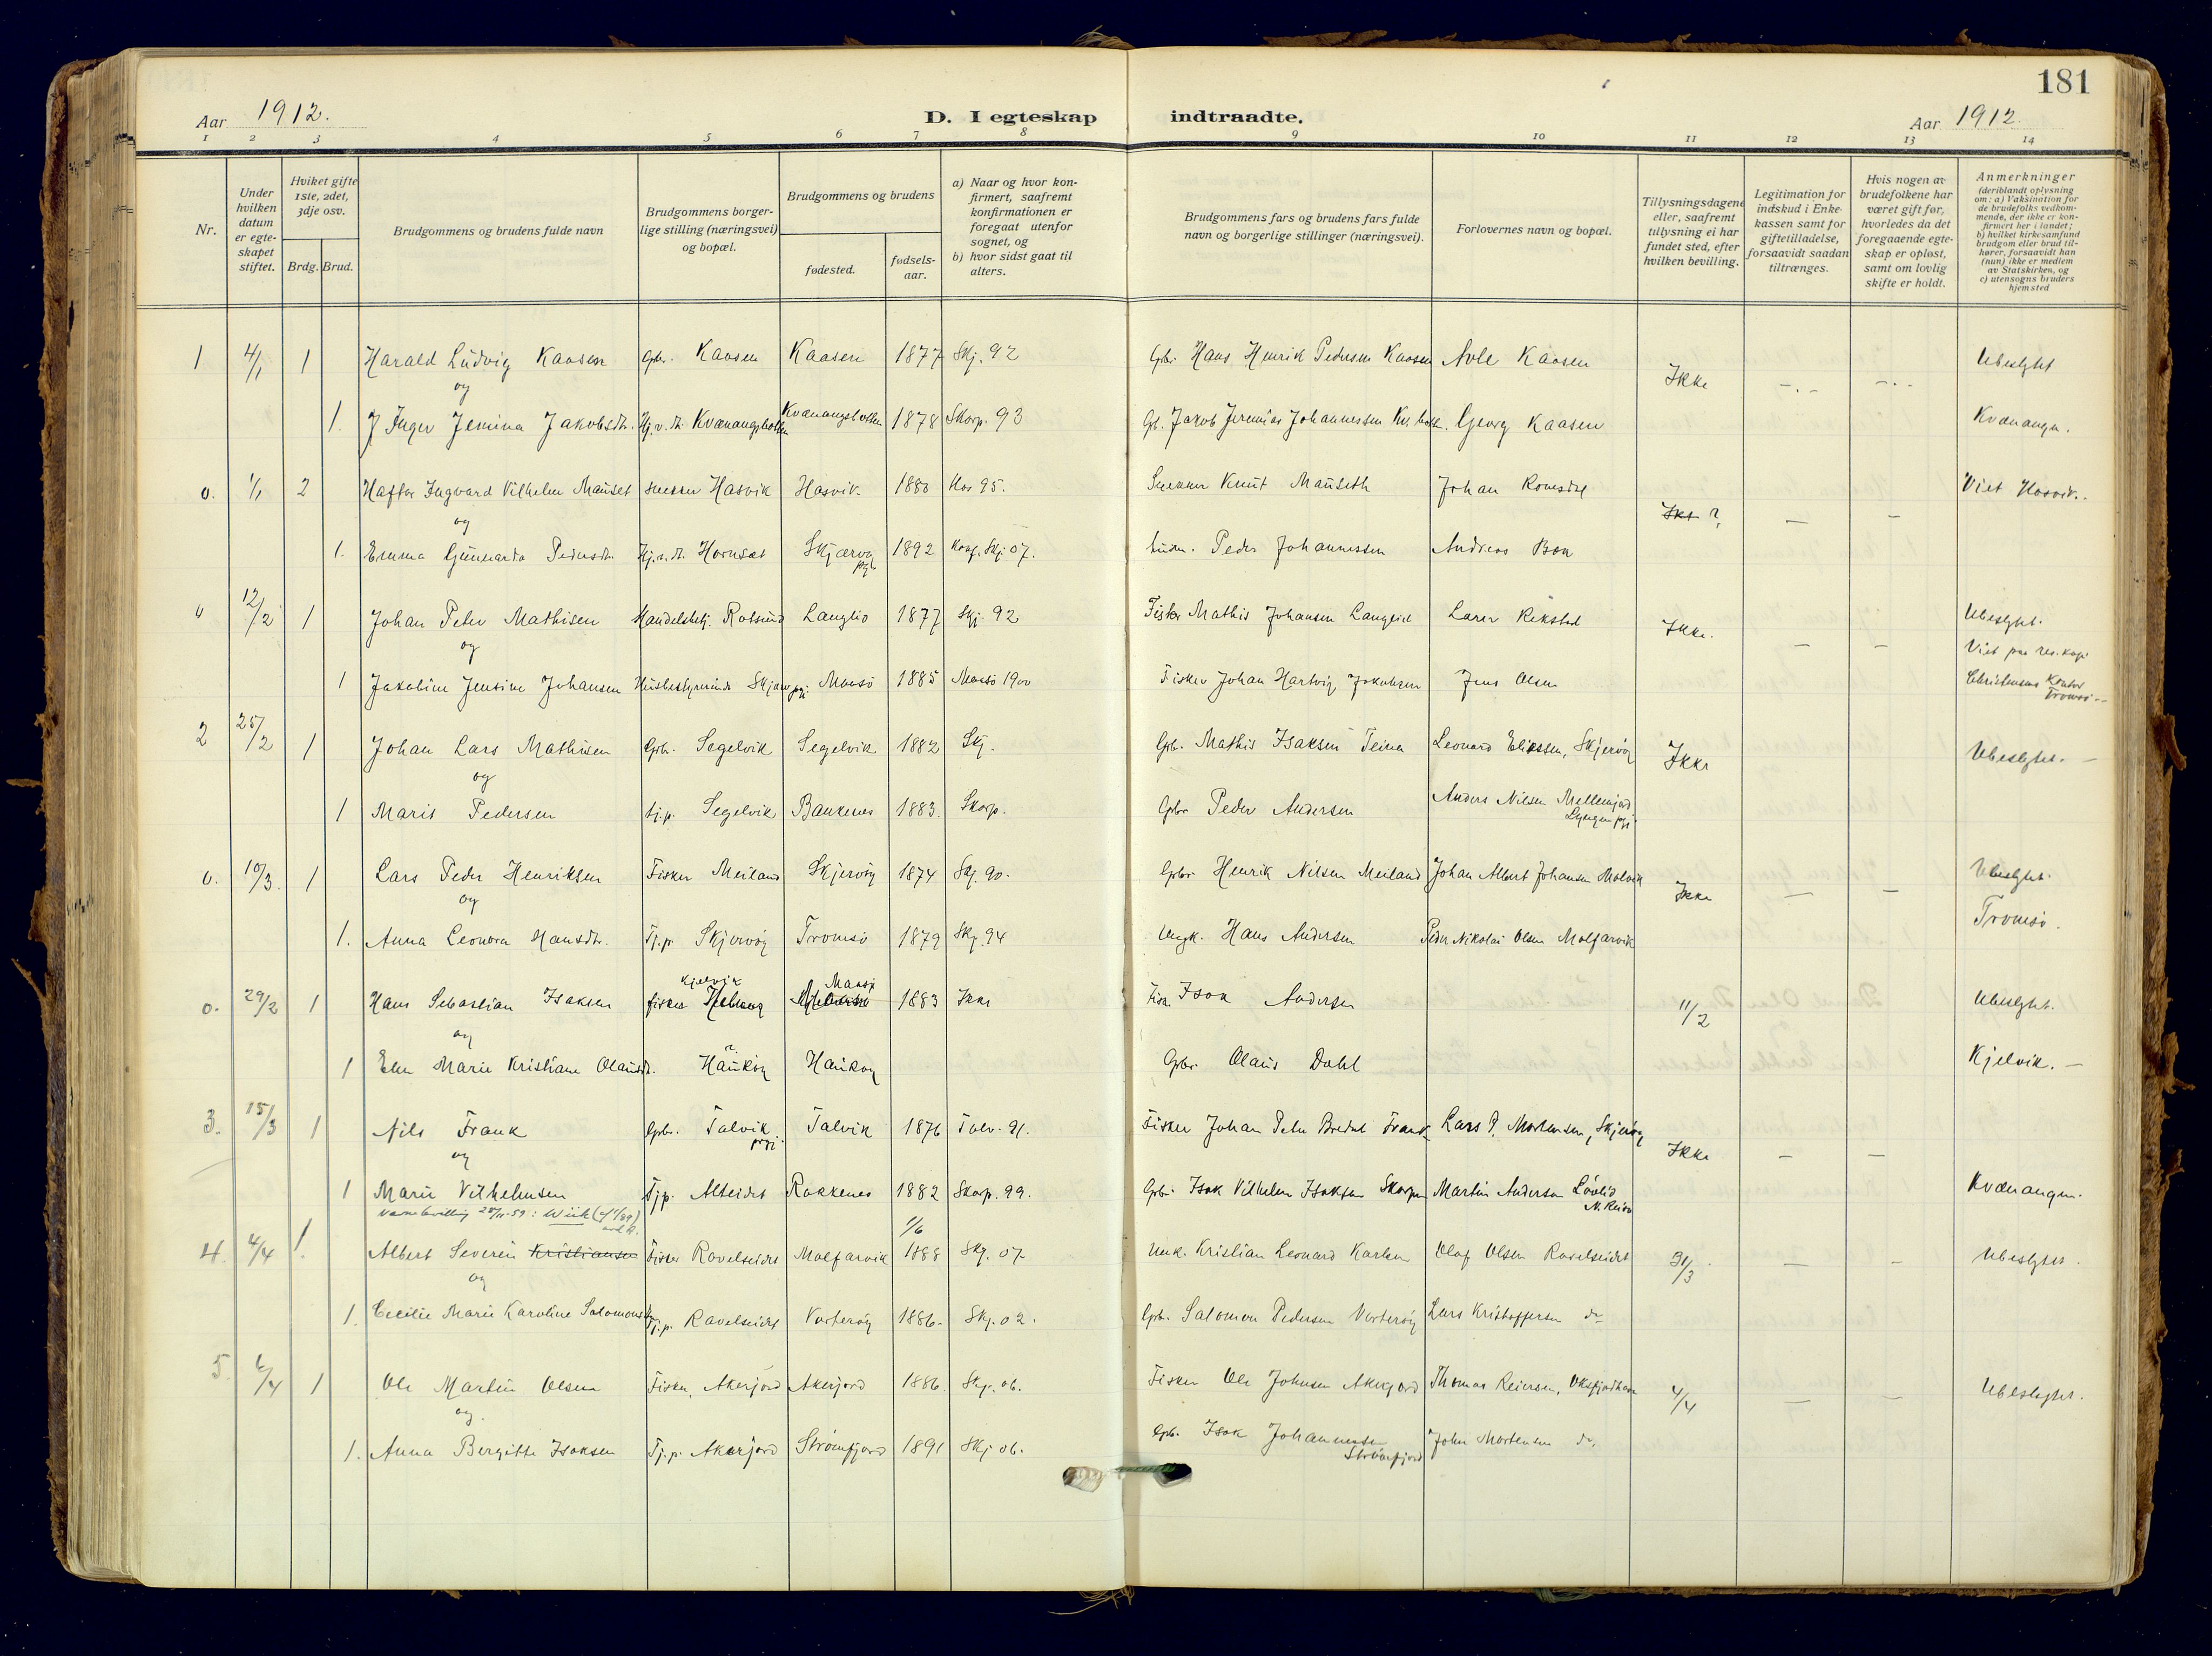 181
Aar 1912.
D. I egteskap indtraadte.
Aar 1912.
1 2 3 4 5 6 7 8 9 10 11 12 13 14
Nr.
Under hvilken datum er egteskapet stiftet.
Hviket gifte 1ste, 2det, 3dje osv.
Brdg. Brud.
Brudgommens og brudens fulde navn
Brudgommens borgerlige stilling (næringsvei) og bopæl.
Brudgommens og brudens
fødested.
fødselsaar.
a) Naar og hvor konfirmert, saafremt konfirmationen er foregaat utenfor sognet, og
b) hvor sidst gaat til alters.
Brudgommens fars og brudens fars fulde navn og borgerlige stillinger (næringsvei).
Forlovernes navn og bopæl.
Tillysningsdagene eller, saafremt tillysning ei har fundet sted, efter hvilken bevilling.
Legitimation for indskud i Enkekassen samt for giftetilladelse, forsaavidt saadan tiltrænges.
Hvis nogen av brudefolkene har været gift før, hvorledes da det foregaaende egteskap er opløst, samt om lovlig skifte er holdt.
Anmerkninger
(deriblandt oplysning om: a) Vaksination for de brudefolks vedkommende, der ikke er konfirmert her i landet; b) hvilket kirkesamfund brudgom eller brud tilhører, forsaavidt han (hun) ikke er medlem av Statskirken, og c) utensogns bruders hjemsted
1 4/1 1 Harald Ludvig Kaasen Gbr. Kaasen Kaasen 1877 Skj. 92 Gbr. Hans Henrik Pedersen Kaasen Aole Kaasen Ikke -.- -.- Ubeslgtet
og
1. Inger Jemina Jakobsdtr. Hj.v. dtr. Kvænangsbotten Kvænangsbotten 1878 Skorp. 93 Gb. Jakob Jeremias Johannessen Kv. bott. Georg Kaasen Kvænangn.
0. 1/1 2 Haftor Ingvard Vilhelm Mauset Hasvik Hasvik. 1880 Has 95. Knut Mauseth Johan Romsdal Ikke ? — — Viet Hasvik.
og
1. Emma Gunnarda Pedersdtr. Hj.v. dtr. Hornset Skjærvø pgj. 1892 Konf. Skj. 07. Peder Johannessen Andreas Bær
" 12/2 1 Johan Peter Mathisen Handelsbetj. Rotsund Langlid 1877 Skj. 92 Fisker Mathis Johansen Langlid Laurer Rekstad Ikke. — — Ubeslgtet.
og Viet paa res. kap.
1 Jakobine Jensine Johansen Husbestyrerinde Skjærv. pgj. Maasö 1885 Maasö 1900 Fisker Johan Hartvig Jakobsen Jens Olsen Christensens Kontor Tromsö.-
2 25/2 1 Johan Lars Mathisen Gbr. Segelvik Segelvik 1882 Skj. Gbr. Mathis Isaksen Teina Leonard Eliassen, Skjervøy Ikke Ubeslgtet. —
og
1 Marit Pedersen tj.p. Segelvik Baukenes 1883. Skorp. Gbr Peder Andersen Anders Nilsen Mellemjord Lyngen pgj.
0. 10/3. 1 Lars Peder Henriksen Fisker Meiland Skjervøy 1874 Skj. 90. Gbr. Henrik Nilsen Meiland Johan Albert Johansen Molvik Ikke — — Ubeslgtet.
og
1. Anna Leonora Hansdtr. Tj.p. Skjervøy Tromsö 1879 Skj. 94 Ungk. Hans Andersen Peder Nikolai Olsen Molfarvik Tromsö.
0. 29/2 1 Hans Sebastian Isaksen fisker Kjelvik Maasø 1883 Ikke Fisk. Isak Andersen 11/2 Ubeslgtet.
og
1 Elen Marie Kristiane Olausdtr. Haukøy Haukøy Gbr. Olaus Dahl Kjelvik. —
3. 15/3 1 Nils Frank Gbr. Talvik prgj. Talvik 1876 Talv. 91. Fisker Johan Peter Bredal Frank Lars P. Mortensen, Skjervøy Ikke — —
og
1 Marie Vilhelmsen Tjp. Alteidet Rakkenes 1882 Skorp. 99. Gbr. Isak Vilhelm Isaksen Skorpen Martin Andersen Løvlid N. Reisen Kvænangen.
Navnebevilling 25/11-59: Wiik
4 4/4 1. Albert Severin Kristiansen Fisker Ravelseidet Molfarvik 1/6 1888 Skj. 07 Unk. Kristian Leonard Karlsen Olaf Olsen Ravelseidet 31/3 — — Ubeslgtet.
og
1. Cecilie Marie Karoline Salomonsdtr. Tj.p. Ravelseidet Vorterøy 1886. Skj. 02. Gbr. Salomon Pedersen Vorterøy Lars Kristoffersen do
5. 6/4 1 Ole Martin Olsen Fisker, Akerjord Akerjord 1886. Skj. 06. Fisker Ole Johnsen Akerjord Thomas Reiersen, Oksfjordhavn 4/4 — — Ubeslgtet.
og.
1. Anna Bergitte Isaksen Tj.p. Akerjord Strömfjord 1891 Skj. 06. Gbr. Isak Johannessen Strömfjord John Mortensen do.